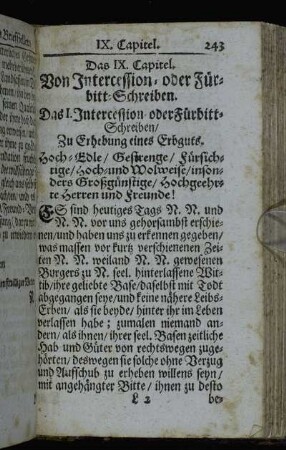 IX. Capitel. 243
Das IX. Capitel.
Von Intercession- oder Für-
bitt-Schreiben.
Das I. Intercession oder Fürbitt-
Schreiben/
Zu Erhebung eines Erbguts.
Hoch-Edle/ Gestrenge/ Fürsich-
tige/ Hoch-und Wolweise/ inson-
ders Großgünstige/ Hochgeehr-
te Herren und Freunde!
ES sind heutiges Tags N. N. und
N. N. vor uns gehorsambst erschie-
nen/ und haben uns zu erkennen gegeben/
was massen vor kurtz verschienenen Zei-
ten N. N. weiland N. N. gewesenen
Burgers zu N. seel. hinterlassene Wit-
tib/ ihre geliebte Base/ daselbst mit Todt
abgegangen seye/ und keine nähere Leibs-
Erben/ als sie beyde/ hinter ihr im Leben
verlassen habe; zumalen niemand an-
dern/ als ihnen/ ihrer seel. Basen zeitliche
Hab und Güter von rechtswegen zuge-
hörten/ deswegen sie solche ohne Verzug
und Auffschub zu erheben willens seyn/
mit angehängter Bitte/ ihnen zu desto
L 2 be-